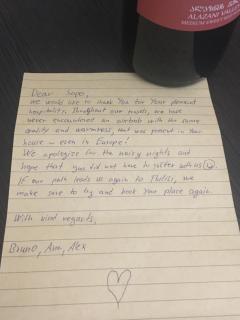 ALAZANI VALLEY
MEDIUM SWEET
Dear Sopo,
we would like to thank You for Your pleasant
hospitality. Throughout our travels, we have
never encountered an airbnb with the same
quality and warmness, that was present in Your
house – even in Europe!
We apologize for the noisy nights and
hope that you did not have to suffer with us ☺.
If our path leads us again to Tbilisi, we
make sure to try and book Your place again.
With kind regards,
Bruno, Ann, Alex